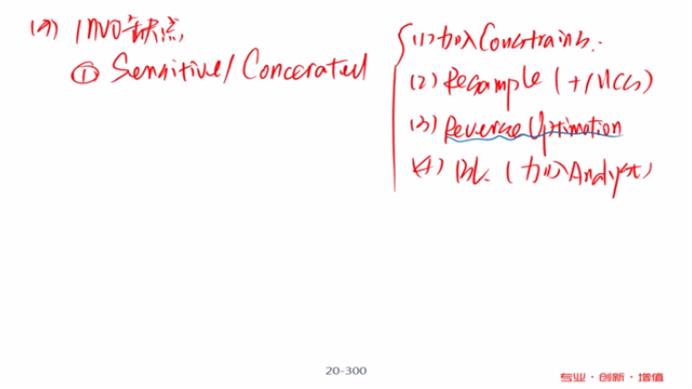 (4) MVO缺点
① Sensitive/Concerated
(1) 加入 Constrains.
(2) Resample (+MCS)
(3) Reverse Optimation
(4) BL (加入 Analyst)
20-300
专业·创新·增值